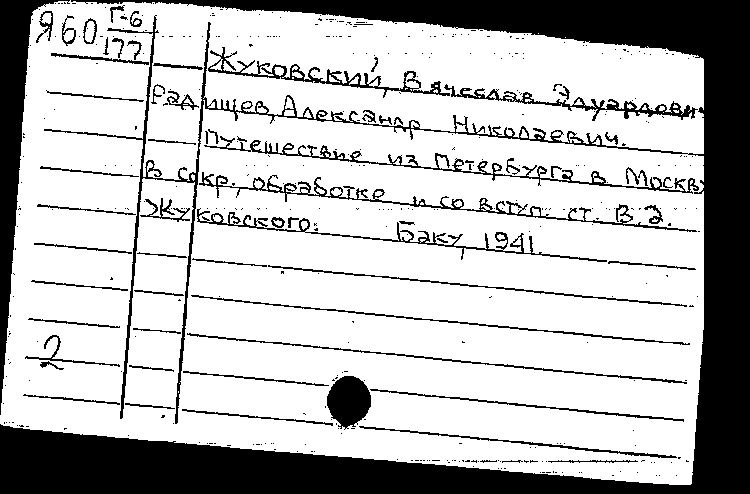 Я60 Г-6
177
Жуковский, Вячеслав Эдуардович
Радищев, Александр Николаевич.
Путешествие из Петербурга в Москву
В сокр., обработке и со вступ. ст. В.Э.
Жуковского. Баку, 1941.
2